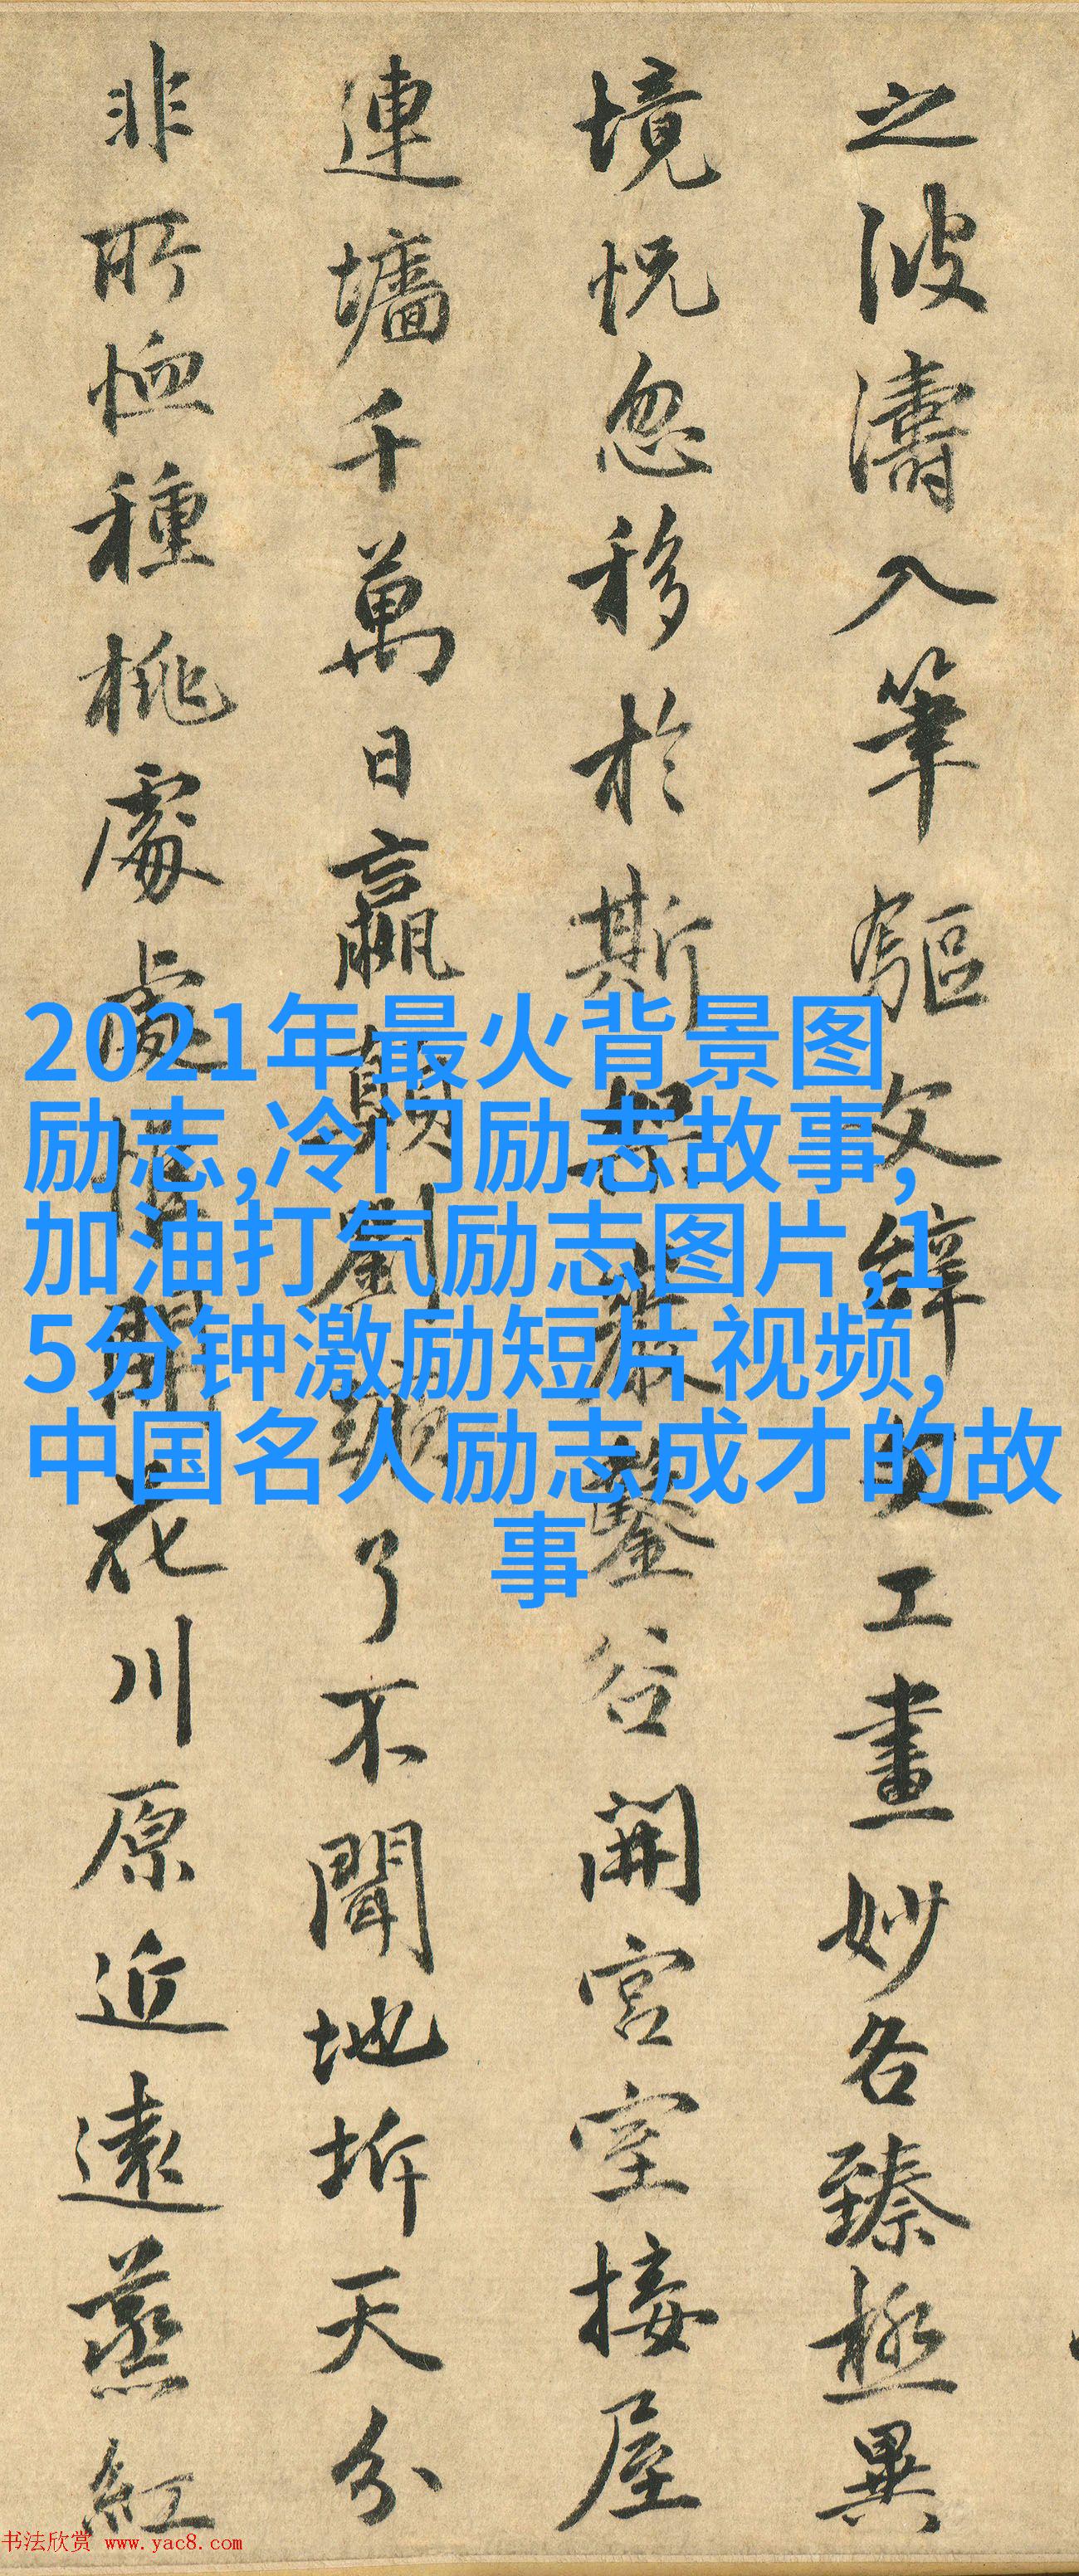 之波濤入筆驅文辭文工畫妙各臻極異
境恍忽移於斯架巖鑿谷開宮室接屋
連墻千萬日嬴顛劉蹶了不聞地坼天分
非所恤種桃處處惟開花川原近遠蒸紅
2021年最火背景图
励志,冷门励志故事,
加油打气励志图片,1
5分钟激励短片视频,
中国名人励志成才的故
事
书法欣赏 www.yac8.com